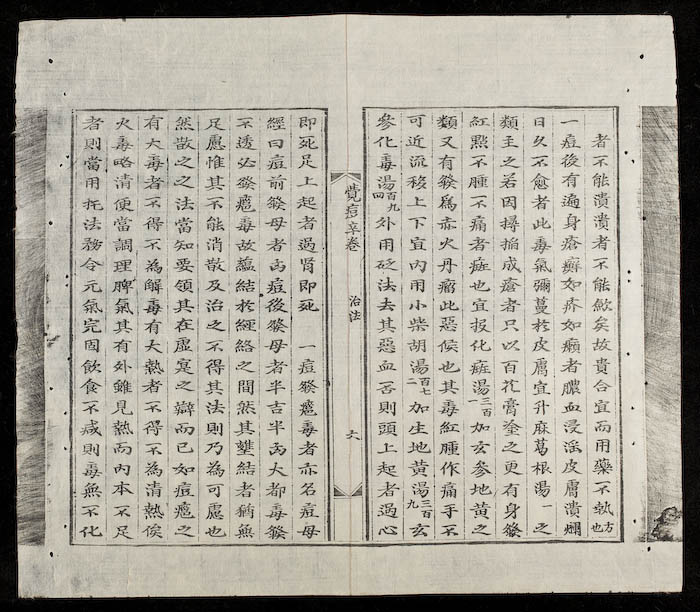 者不能潰潰者不能歛矣故貴合宜而用藥不執方也
一痘後有遍身瘡癬如疥如癩者膿血浸滛皮膚潰爛
日久不愈者此毒氣彌蔓於皮膚宜升麻葛根湯一之
類主之若因撏搯成瘡者只以百花膏塗之更有身發
紅㸃不腫不痛者症也宜报化症湯三百一加玄參地黄之
類又有發為赤火丹瘤此惡候也其毒紅腫作痛手不
可近流移上下宜内用小柴胡湯百七二加生地黄湯三百九玄
參化毒湯百九四外用砭法去其惡血否則頭上起者過心
覺痘辛卷
治法
六
即死足上起者過肾即死 一痘發癰毒者亦名痘母
經曰痘前發母者凶痘後發母者半吉半凶大都毒發
不透必發癰毒故藴結於經絡之間然其壅結者猶無
足慮惟其不能消散及治之不得其法則乃為可慮也
然散之之法當知要領其在虚寔之辯而已如痘癰之
有大毒者不得不為解毒有大熱者不得不為清熱俟
火毒略清便當調理脾氣其有外雖見熱而内本不足
者則當用托法務令元氣完固飲食不减則毒無不化